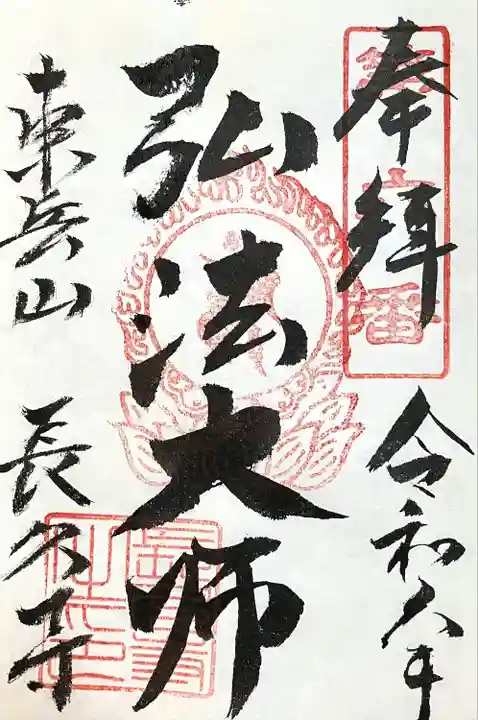 奉拝
令和六年
弘法大師
東岳山 長久寺